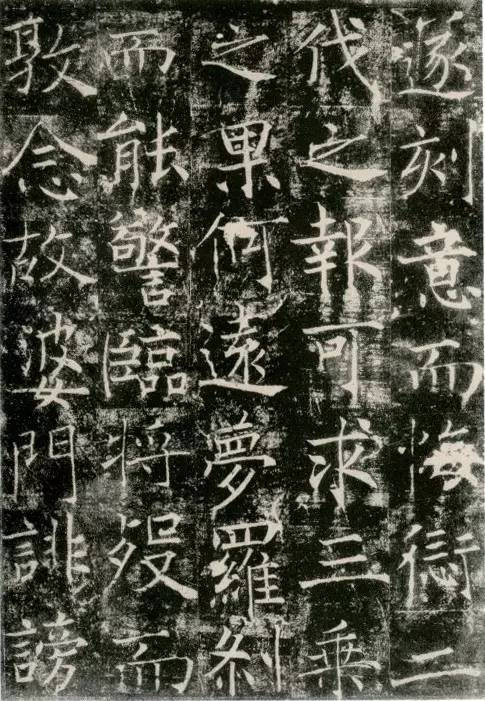 遂刻意而悔愆二
伐之報可求三乘
之果何遠夢羅剎
而能警臨将歿而
敦念故婆門誹謗